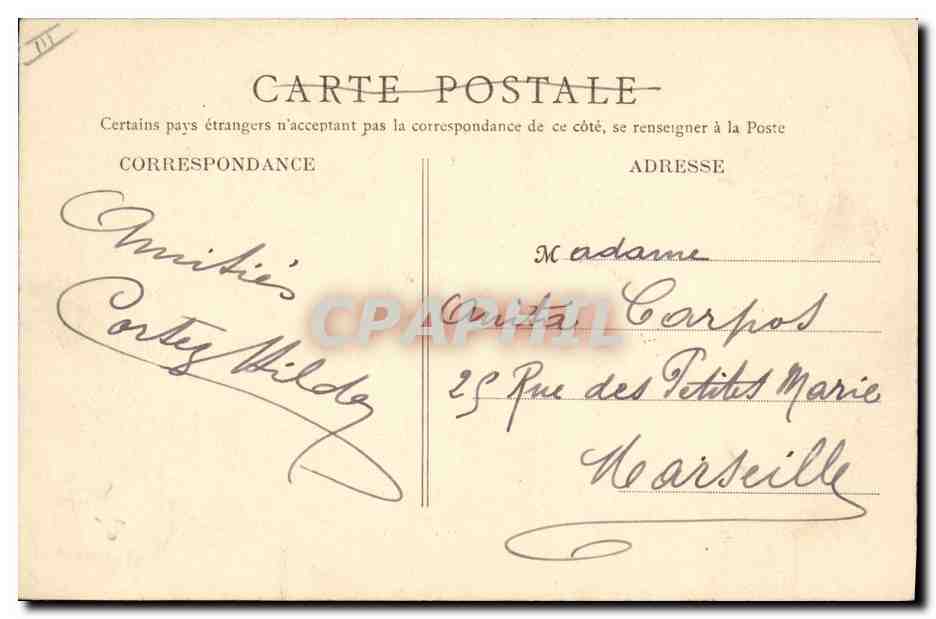 CARTE POSTALE
Certains pays étrangers n'acceptant pas la correspondance de ce côté, se renseigner à la Poste
CORRESPONDANCE
Amitiés
Cortez Hilda
ADRESSE
Madame
Anita Carpos
25 Rue des Petites Marie
Marseille
CPAPHIL